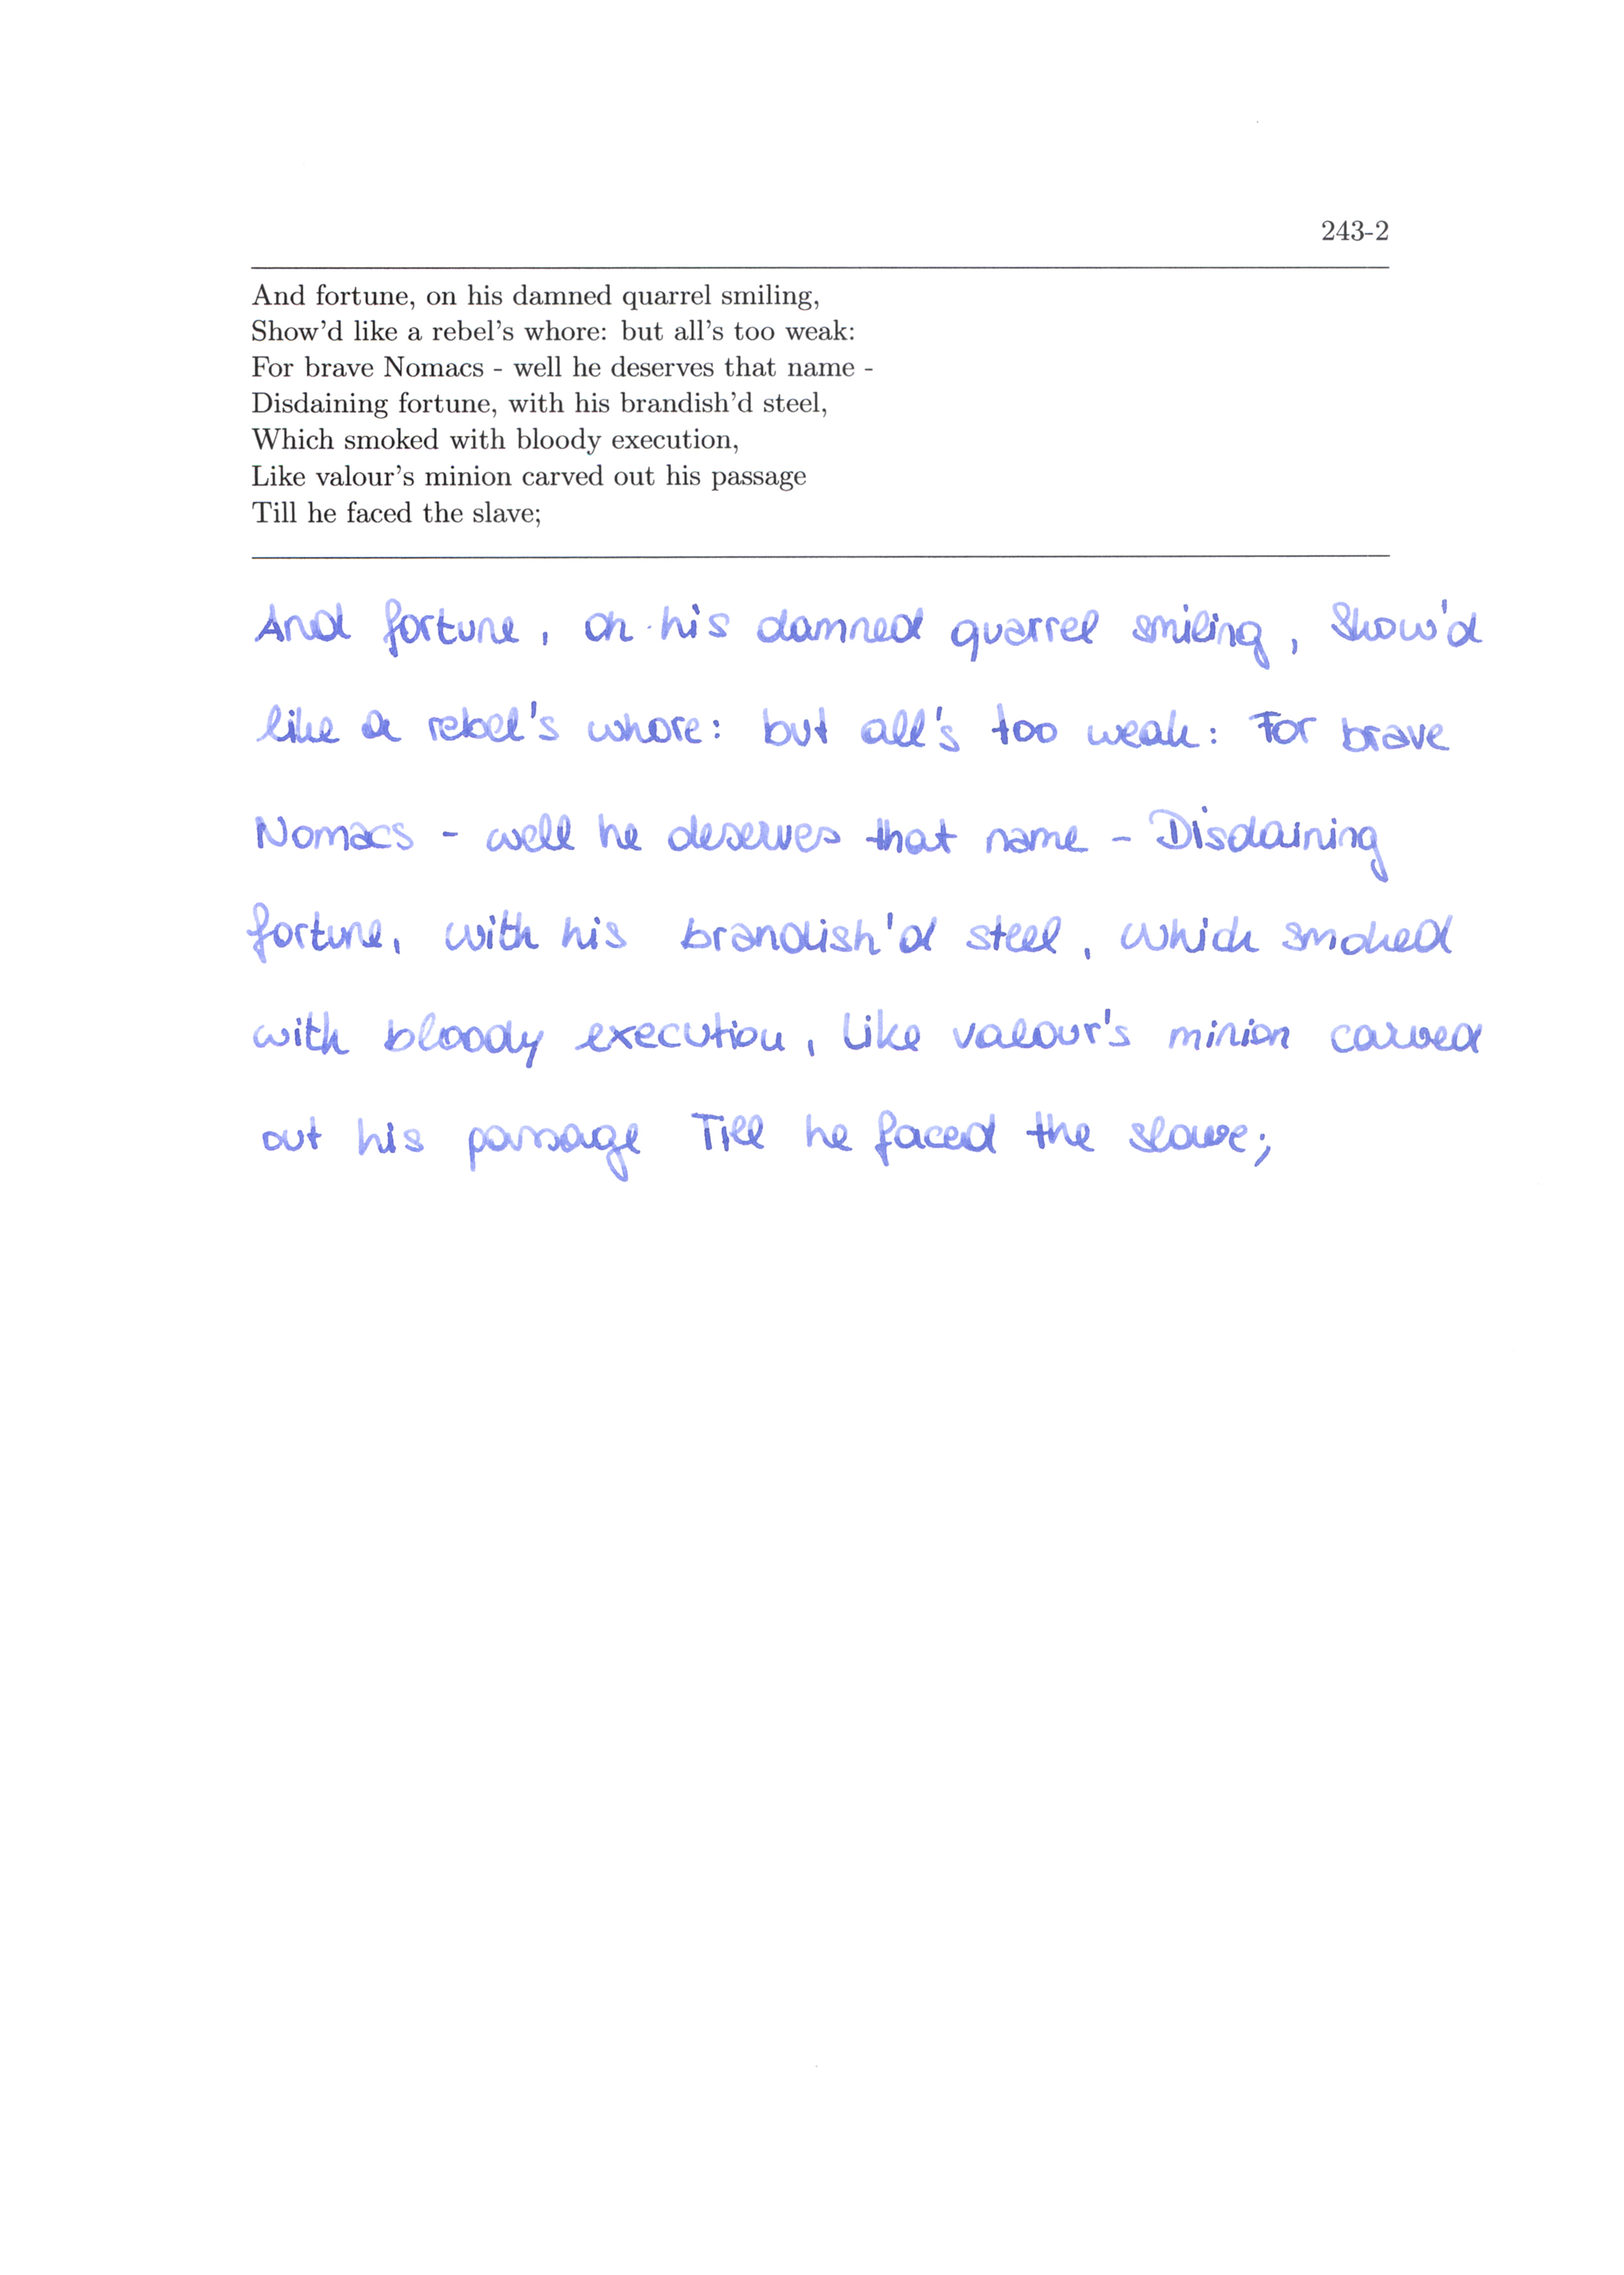 243-2
And fortune, on his damned quarrel smiling,
Show'd like a rebel's whore: but all's too weak:
For brave Nomacs - well he deserves that name -
Disdaining fortune, with his brandish'd steel,
Which smoked with bloody execution,
Like valour's minion carved out his passage
Till he faced the slave;
And fortune, on his damned quarrel smiling, Show'd
like a rebel's whore: but all's too weak: For brave
Nomacs - well he deserves that name - Disdaining
fortune, with his brandish'd steel, which smoked
with bloody execution, Like valour's minion carved
out his passage Till he faced the slave;